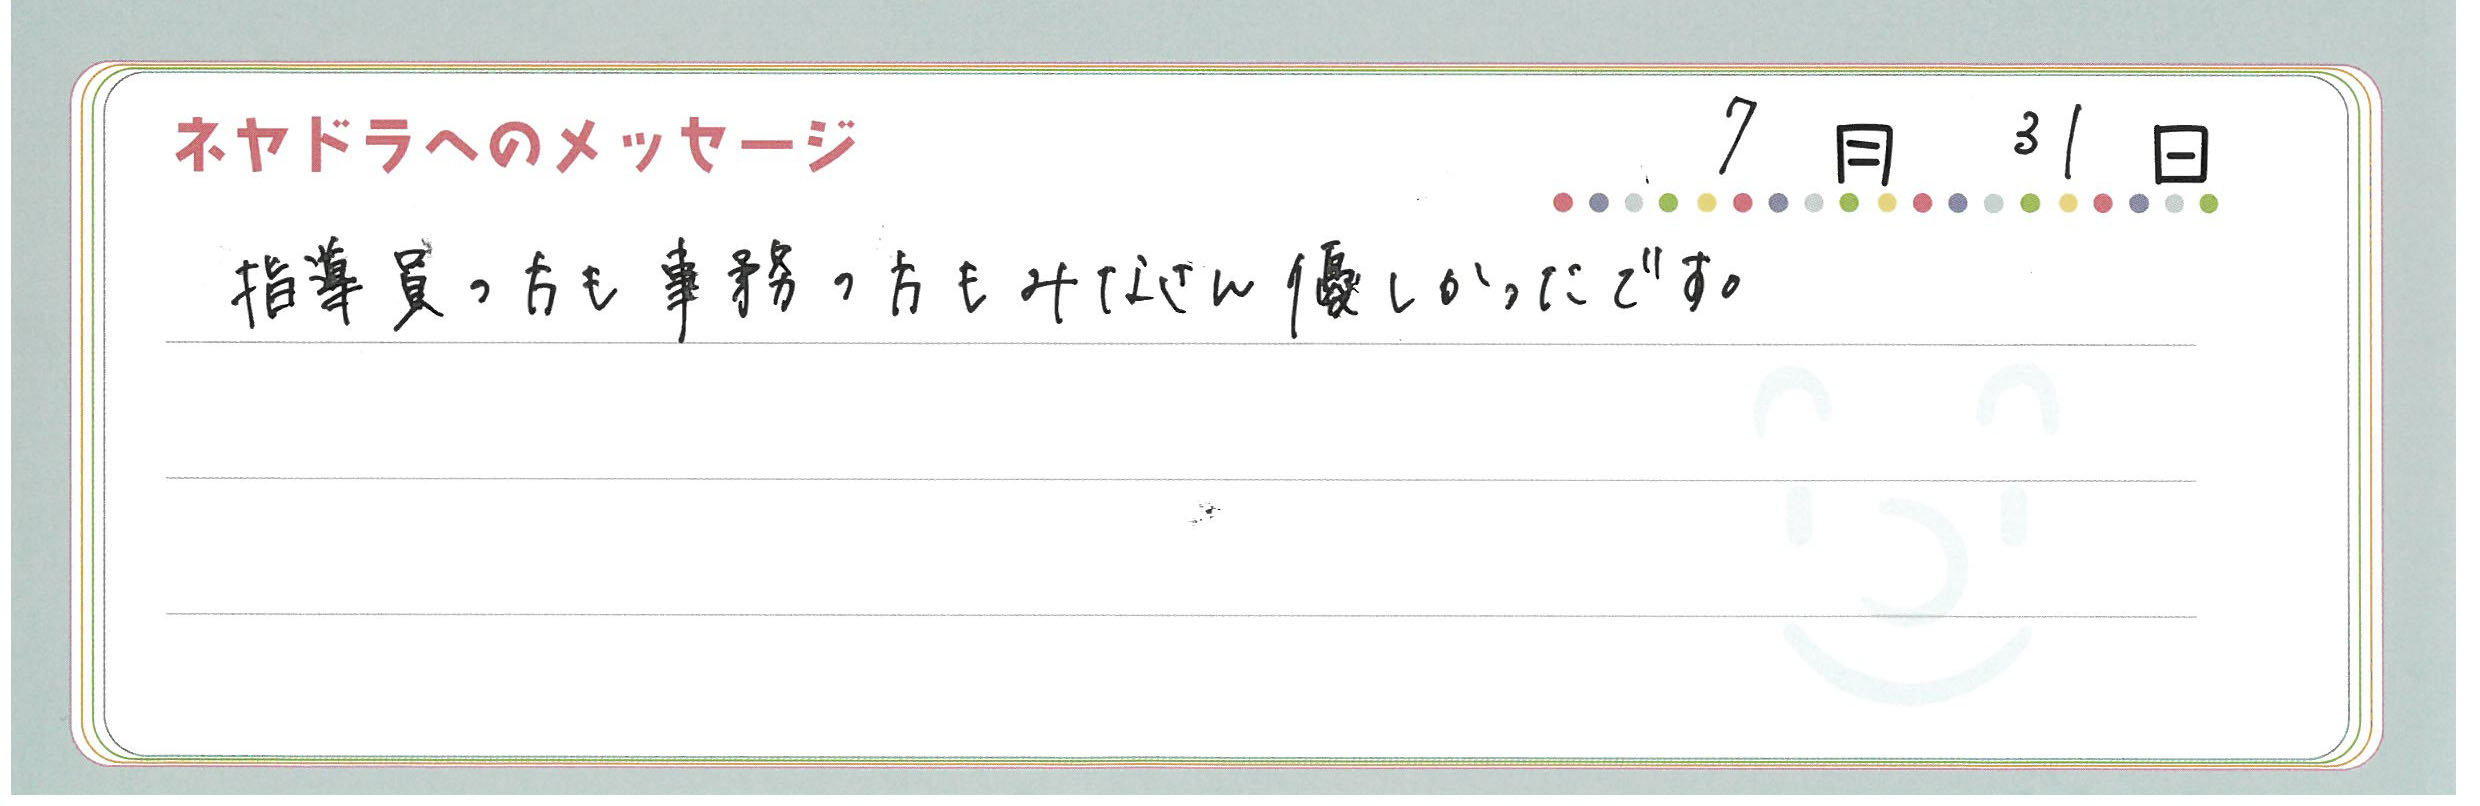 ネヤドラへのメッセージ
7月31日
指導員の方も事務の方もみなさん優しかったです。